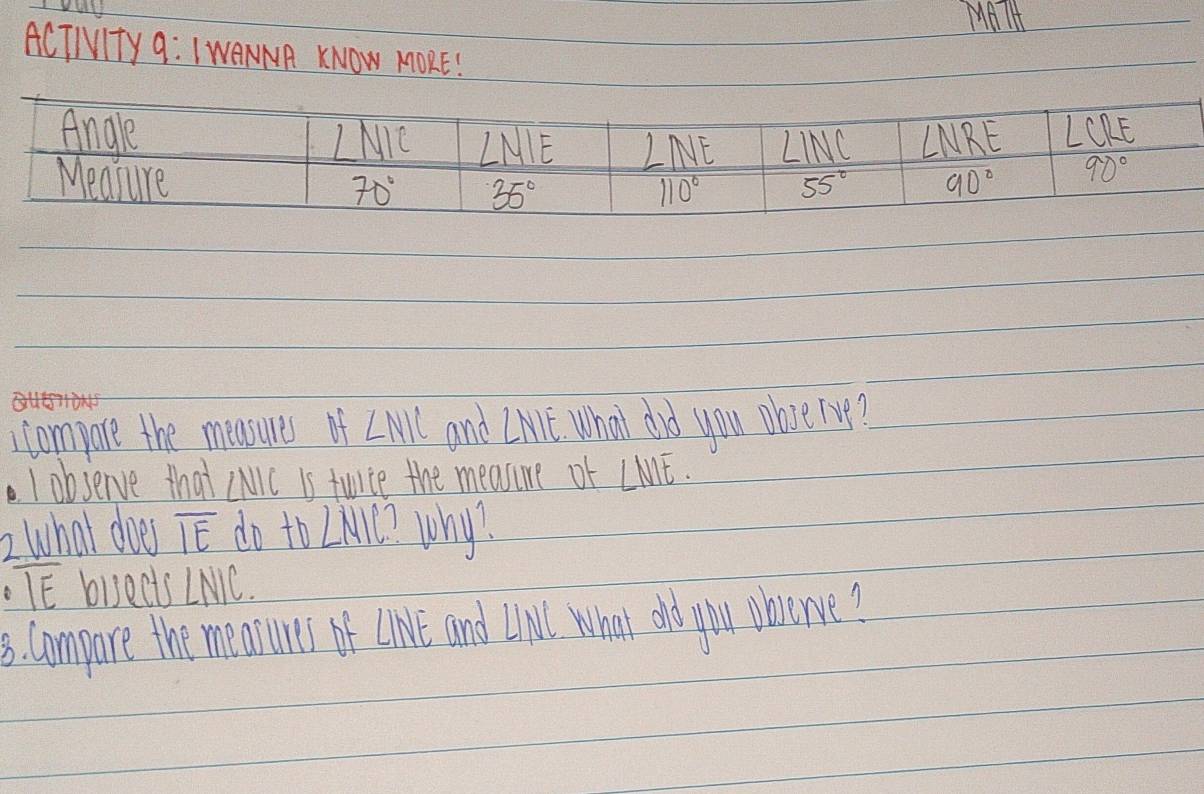 MATH
ACTIVITY 9: I WANNA KNOW MORE!
Angle ∠NIC ∠NIE ∠INE ∠INC ∠NRE ∠CRE
Measure 70° 35° 110° 55° 90° 90°
QUESTIONS
1 Compare the measures of ∠NIC and ∠NIE. What did you observe?
• I observe that ∠NIC is twice the measure of ∠NIE.
2. What does IE do to ∠NIC? Why?
• IE bisects ∠NIC.
3. Compare the measures of ∠INE and ∠INC. What did you observe?